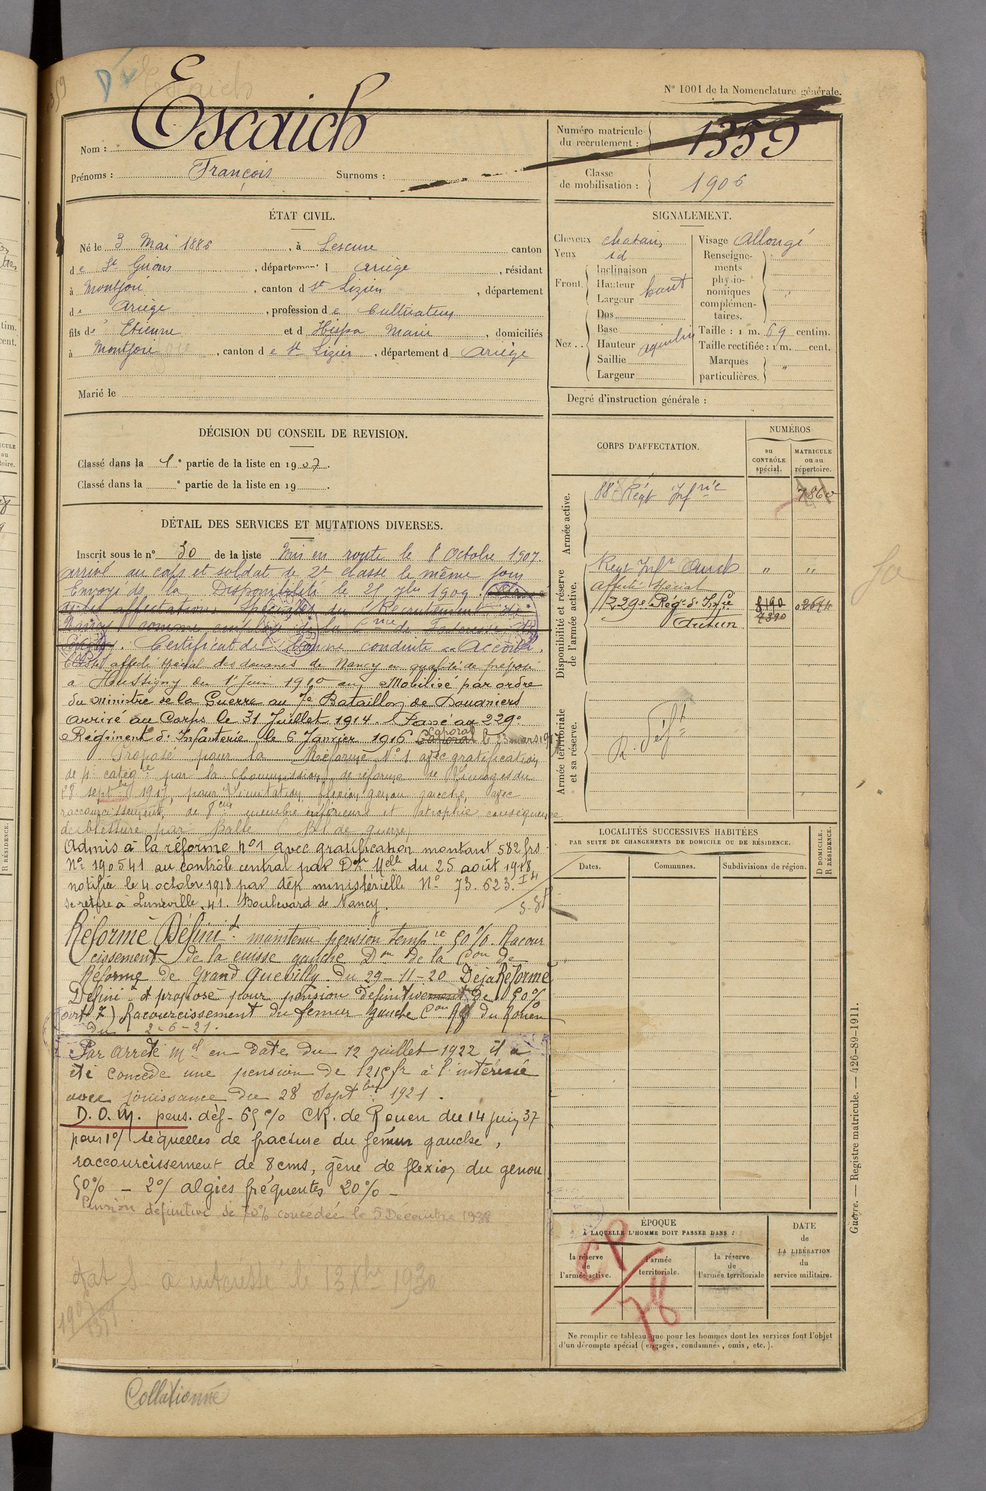 N° 1001 de la Nomenclature générale.
Nom : Escaich
Prénoms : François Surnoms :
Numéro matricule du recrutement : 1359
Classe de mobilisation : 1906
ÉTAT CIVIL.
Né le 3 Mai 1886, à Lescure canton
de St Girons, département d Ariège, résidant
à Montjoie, canton d St Lizier, département
d Ariège, profession de Cultivateur
fils de Etienne et d Marie, domiciliés
à Montjoie, canton de St Lizier, département d Ariège
Marié le
SIGNALEMENT.
Cheveux chatain
Yeux id
Front Inclinaison Hauteur Largeur haut
Nez Dos Base Hauteur Saillie Largeur aquilin
Visage Allongé
Renseignements physionomiques complémentaires. "
Taille : 1 m. 69 centim.
Taille rectifiée : 1 m. cent.
Marques particulières. "
Degré d'instruction générale :
DÉCISION DU CONSEIL DE REVISION.
Classé dans la 1e partie de la liste en 1907.
Classé dans la e partie de la liste en 19
CORPS D'AFFECTATION.
NUMÉROS
au CONTRÔLE spécial.
MATRICULE ou au répertoire.
Armée active.
88e Régt Infrie 7860
Disponibilité et réserve de l'armée active.
Régt Infie Auch " "
Affecté Spécial
229e Rég. d'Infie
Autun
Armée territoriale et sa réserve.
R. Déft
DÉTAIL DES SERVICES ET MUTATIONS DIVERSES.
Inscrit sous le n° 30 de la liste Mis en route le 8 Octobre 1907.
arrivé au corps et soldat de 2e classe le même jour
Envoyé de la Disponibilité le 25 7bre 1909.
Certificat de bonne conduite "Accordé".
affecté spécial des douanes de Nancy en qualité de préposé
à Hussigny du 1er Juin 1910 Mobilisé par ordre
du Ministre de la Guerre au 7e Bataillon de Douaniers
arrivé au Corps le 31 Juillet 1914. Passé au 229e
Régiment d'Infanterie le 6 Janvier 1916 Caporal le mars
Proposé pour la Réforme N° 1 avec gratification
de catégie par la Commission de réforme de Limoges du
28 septbre 1917, pour limitation flexion genou gauche, avec
raccourcissement, de 8cm membre inférieur et atrophie conséquence
de blessure par Balle. fait de guerre,
Admis à la réforme n°1 avec gratification montant 582 frs.
N° 190541 au contrôle central par Don Melle du 25 août 1918
notifiée le 4 octobre 1918 par dék ministérielle N° 73.623.
se retire à Lunéville, 41. Boulevard de Nancy.
Réformé Définit. maintenu pension tempre 50% Raccour
cissement de la cuisse gauche Don de la Con de
Réforme de Grand Quevilly du 29-11-20 Déjà Réformé
Définit et proposé pour pension définitive de 50%
(art 7) Raccourcissement du fémur gauche Con Rf du Rouen
du 2-6-21.
Par arrêté Mel en date du 12 juillet 1922 il a
été concédé une pension de fr à l'intéressé
avec jouissance du 28 Septbre 1921.
D. O. M. pens. déf - 65% CR. de Rouen du 14 juin 37
pour 1°/ séquelles de fracture du fémur gauche,
raccourcissement de 8cms, gêne de flexion du genou
50% - 2°/ algies fréquentes 20% -
Pension définitive de concédée le 5 Decembre 1938
LOCALITÉS SUCCESSIVES HABITÉES
PAR SUITE DE CHANGEMENTS DE DOMICILE OU DE RÉSIDENCE.
Dates. Communes. Subdivisions de région. D DOMICILE. R RÉSIDENCE.
ÉPOQUE
À LAQUELLE L'HOMME DOIT PASSER DANS :
la réserve de l'armée active. l'armée territoriale. la réserve de l'armée territoriale
DATE de LA LIBÉRATION du service militaire.
CP/78
Ne remplir ce tableau que pour les hommes dont les services font l'objet
d'un décompte spécial (engagés, condamnés, omis, etc.).
Guerre. — Registre matricule. — 426-89-1911.
Collationné